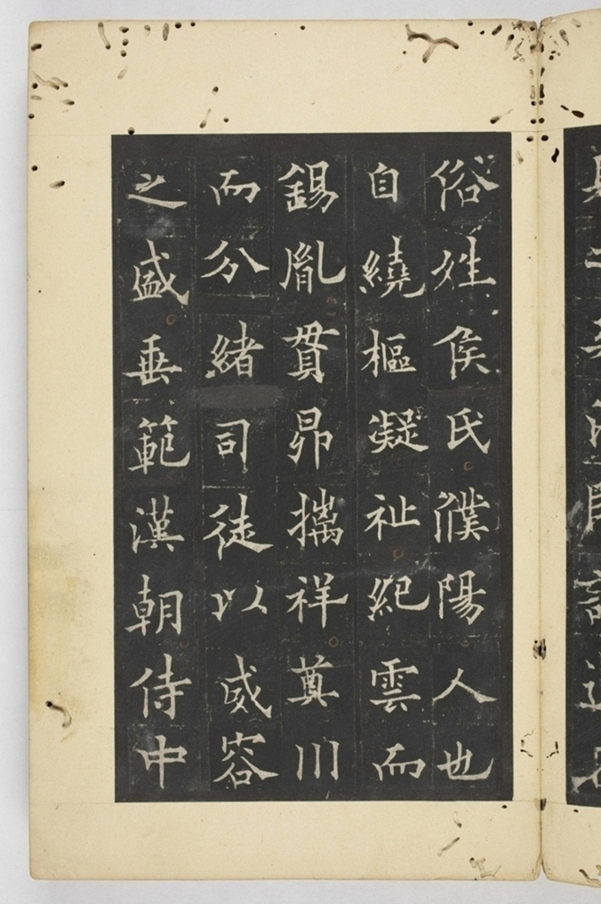 俗姓侯氏濮陽人也
自繞樞凝祉紀雲而
錫胤貫昴擒祥奠川
而分緒司徒以威容
之盛垂範漢朝侍中